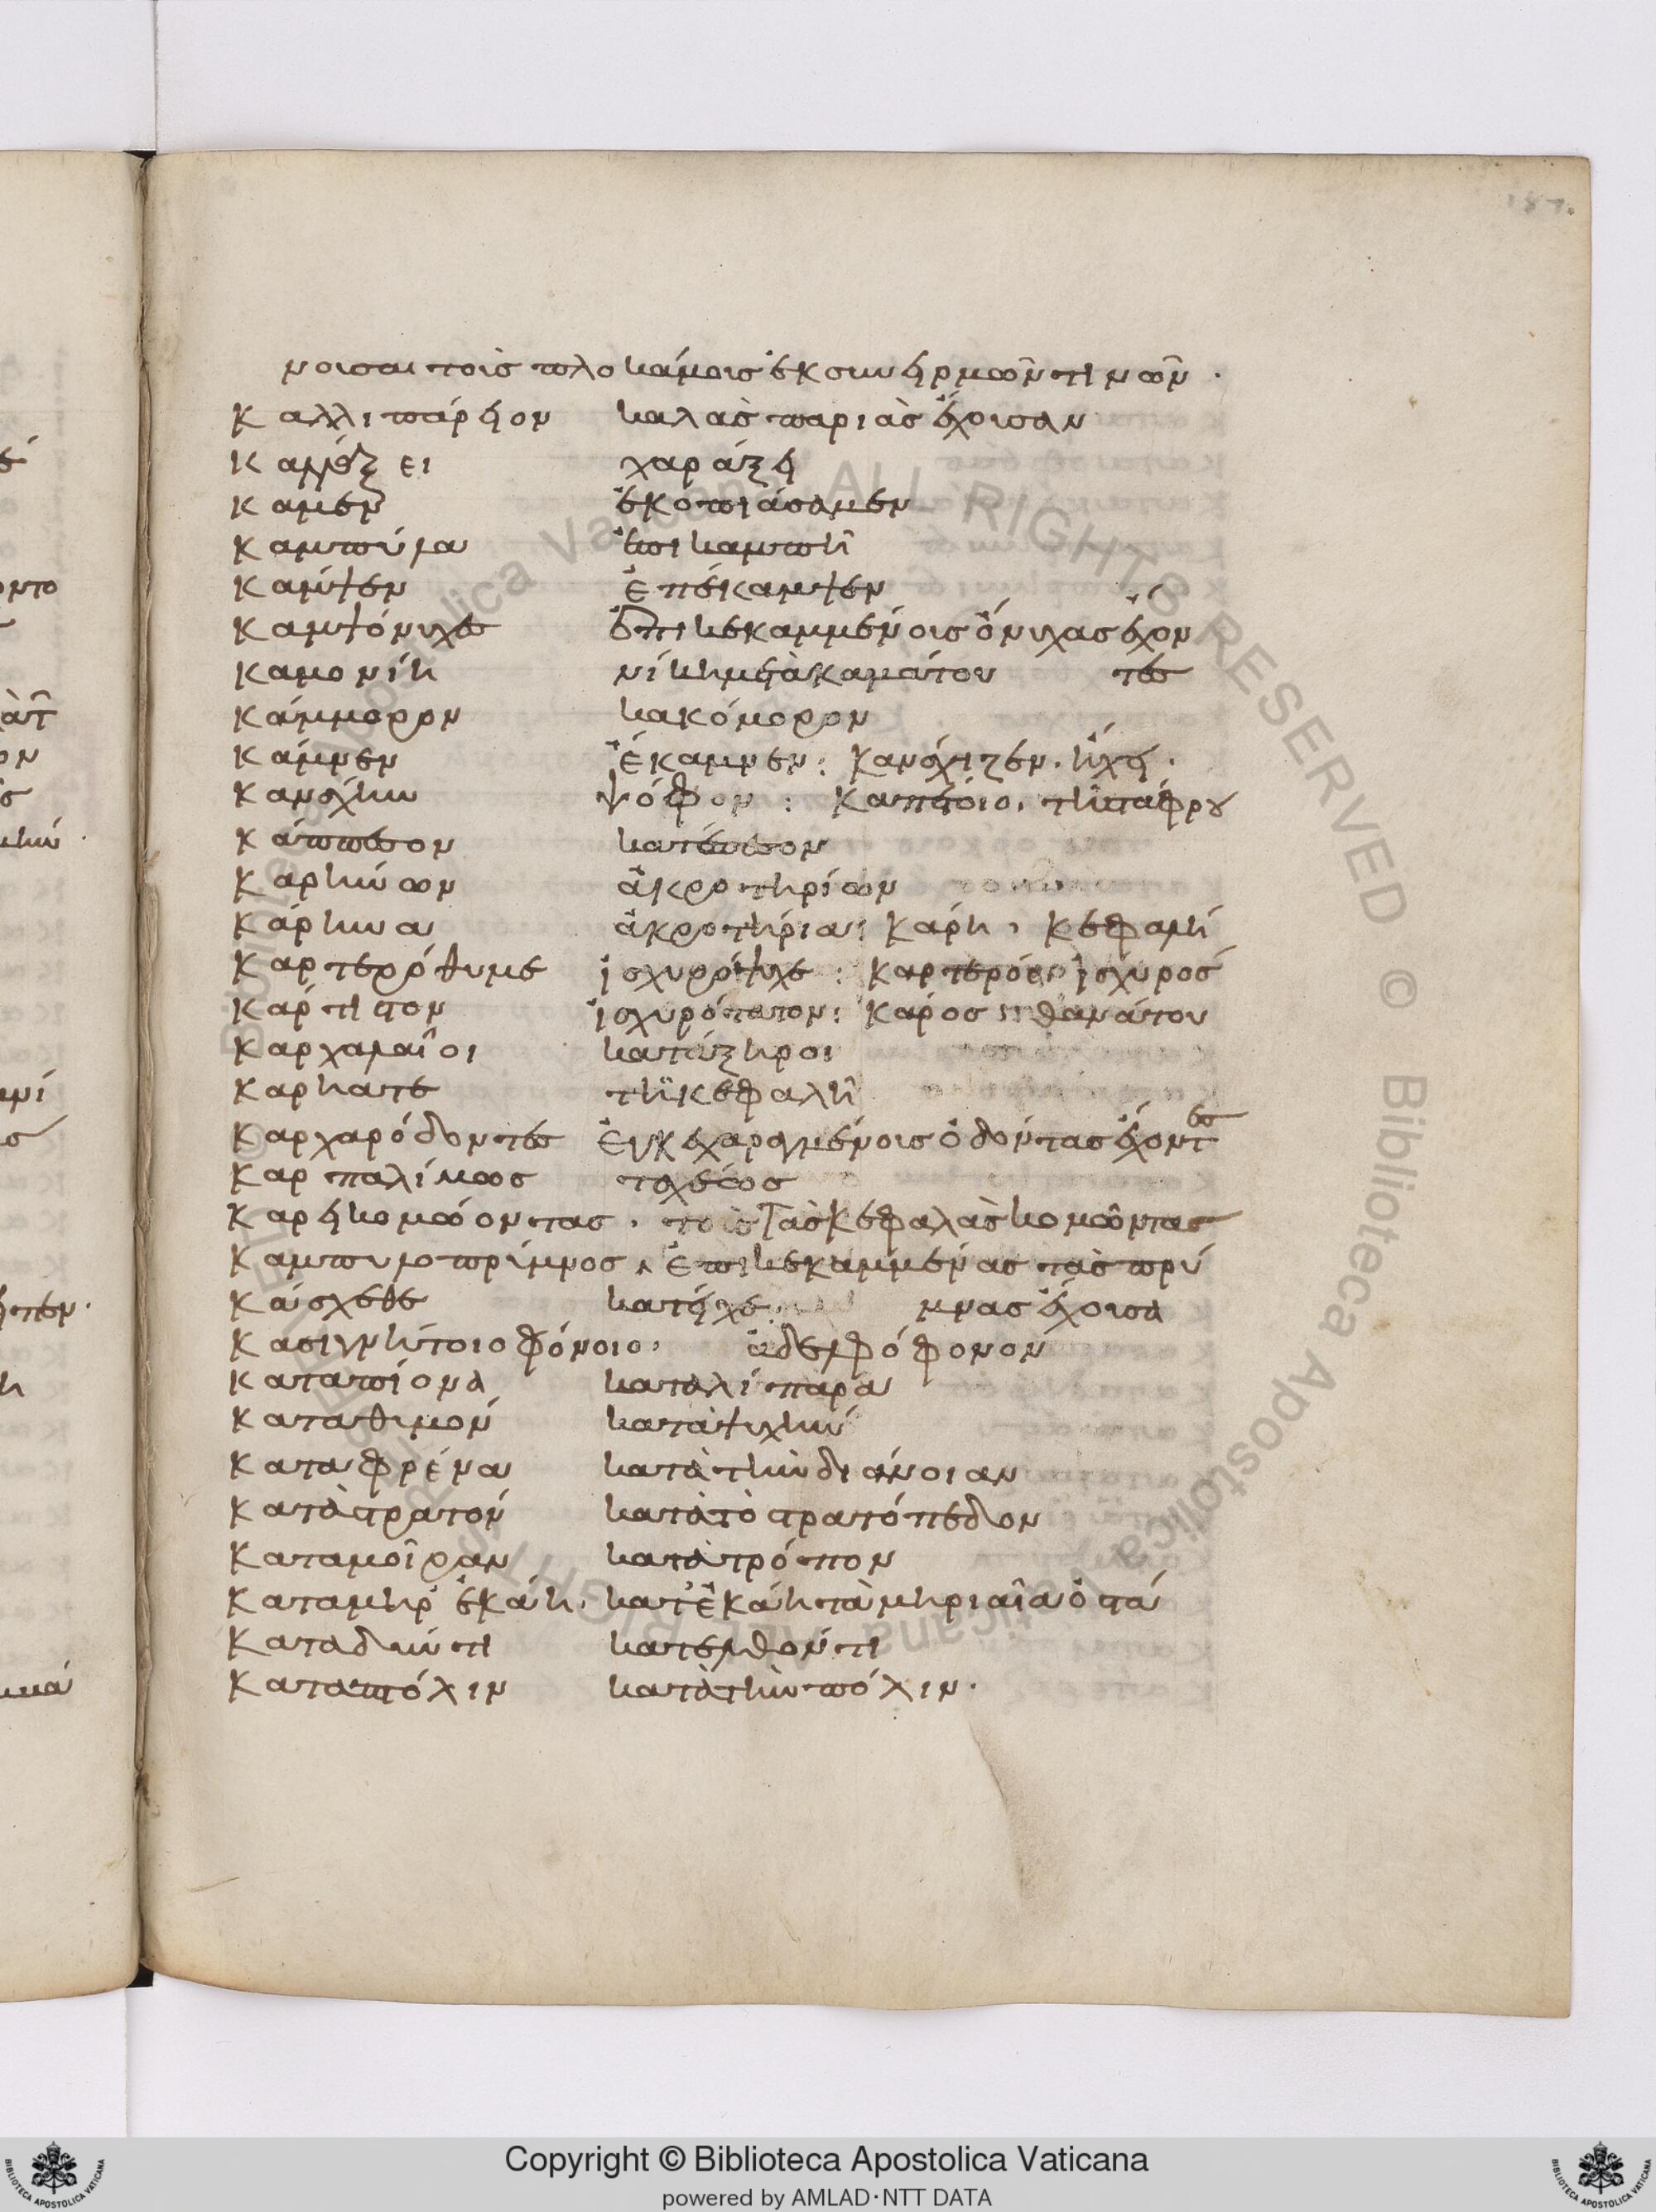 187.
νοισαι τοῖς πλοκάμοις ἐκ συνηρμῶν τινῶν.
Καλλιπάρηον καλὰς παριὰς ἔχοισαν
Καλλέξει χαράξη
Κάμεν ἐκοπιάσαμεν
Καμπύλα ἐπικαμπῆ
Κάμψεν ἐπέκαμψεν
Καμψόνυχες ἐπικεκαμμένοις ὄνυχας ἔχον
Καμονίη νίκη μετὰ καμάτου τες
Κάμμορον κακόμορον
Κάμνεν ἔκαμνεν: Κανάχιζεν. ἤχει.
Καναχήν ψόφον: Καπέτοιο. τῆ τάφρου
Κάππεσον κατέπεσον
Καρήνων ἀκροτηρίων
Κάρηνα ἀκροτήρια: Κάρη. Κεφαλή
Καρτερόθυμε ἰσχυρόψυχε: Καρτερός ἰσχυρός
Κάρτιστον ἰσχυρότατον: Κάρος θανάτου
Καρχαλαῖοι κατάξηροι
Καρήατε τῆ κεφαλῆ
Καρχαρόδοντες ἐγκεχαραγμένοις ὀδόντας ἔχοντες
Καρπαλίμως ταχέως
Καρηκομόωντας. τοὺς τὰς κεφαλὰς κομῶντας
Καμπυλόπρυμνος. ἐπικεκαμμένας τὰς πρύ
Κάσχεθε κατῆχε: μνας ἔχοισα
Κασιγνήτοιο φόνοιο. ἀδελφόφονον
Καταπίονα καταλίπαρα
Καταθυμόν κατὰ ψυχήν
Καταφρένα κατὰ τὴν διάνοιαν
Κατὰ στρατόν κατὰ τὸ στρατόπεδον
Καταμοῖραν κατὰ τρόπον
Καταμῆρ' ἐκάη. κατεκάη τὰ μηριαῖα ὀστά
Καταδύντι κατελθόντι
Καταπτόλιν κατὰ τὴν πόλιν.
Copyright © Biblioteca Apostolica Vaticana
powered by AMLAD·NTT DATA